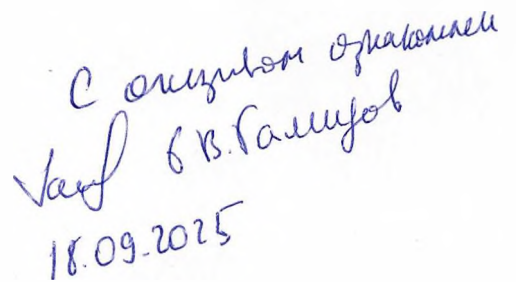 С отзывом ознакомлен
В.Галицов
18.09.2025